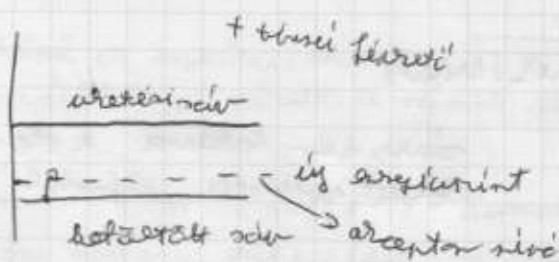 + töltésű vezető
vezetési sáv
új energiaszint
betöltött sáv
akceptor nívó